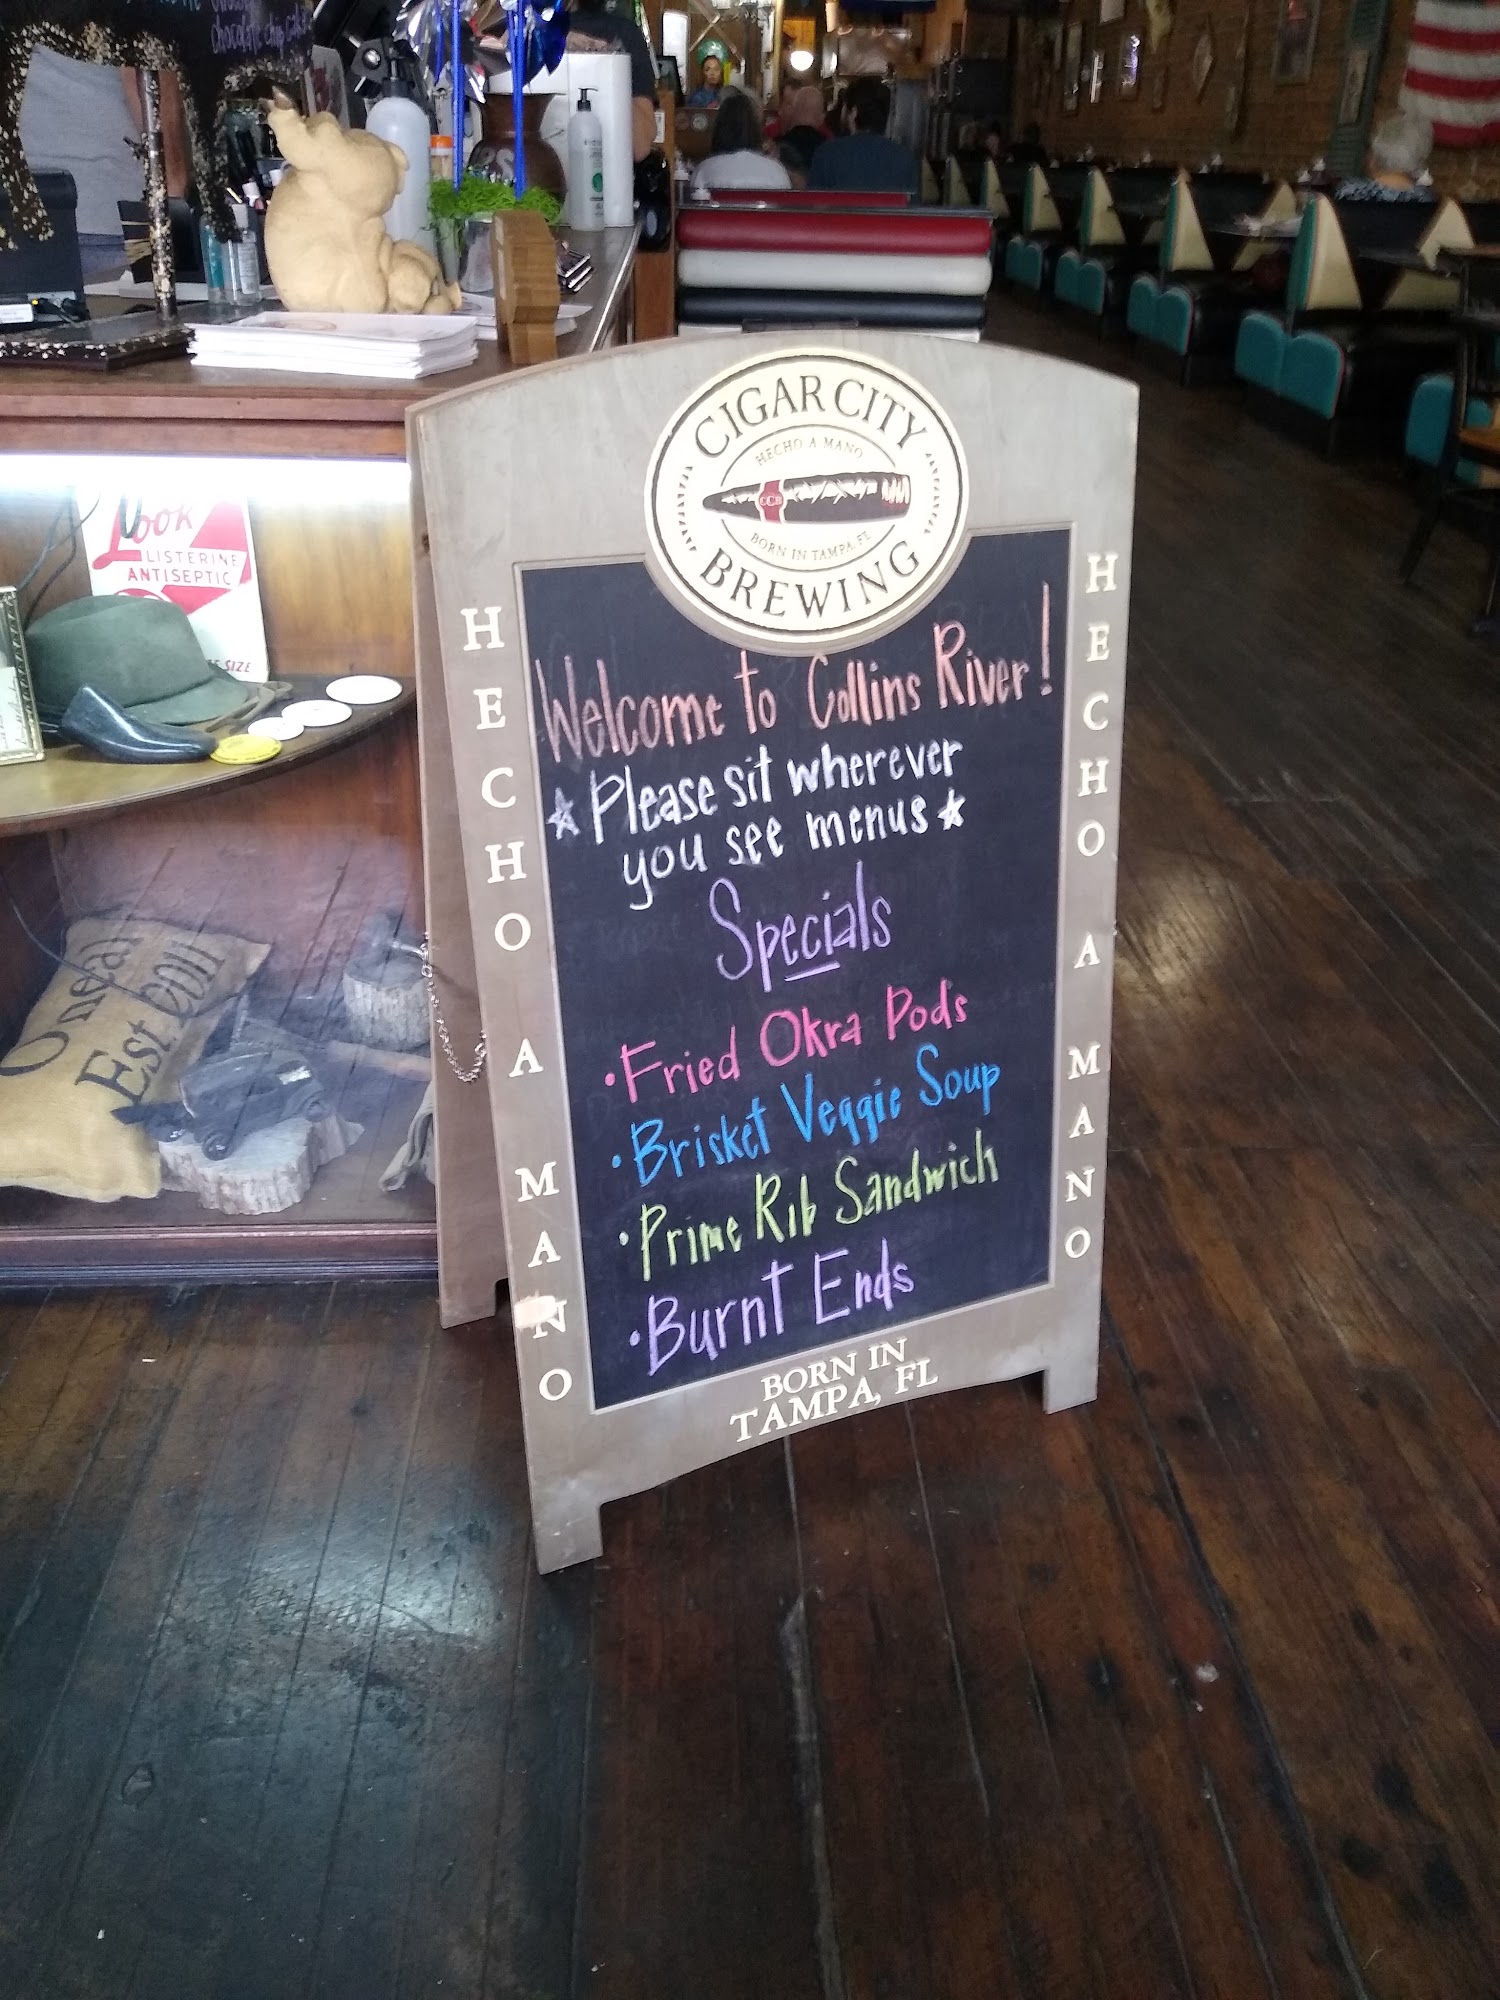 chocolate chip
Look
LISTERINE
ANTISEPTIC
SIZE
Oneal
Est.
CIGAR CITY
HECHO A MANO
CCB
BORN IN TAMPA, FL
BREWING
HECHO A MANO
HECHO A MANO
Welcome to Collins River!
Please sit wherever
you see menus
Specials
• Fried Okra Pods
• Brisket Veggie Soup
• Prime Rib Sandwich
• Burnt Ends
BORN IN
TAMPA, FL